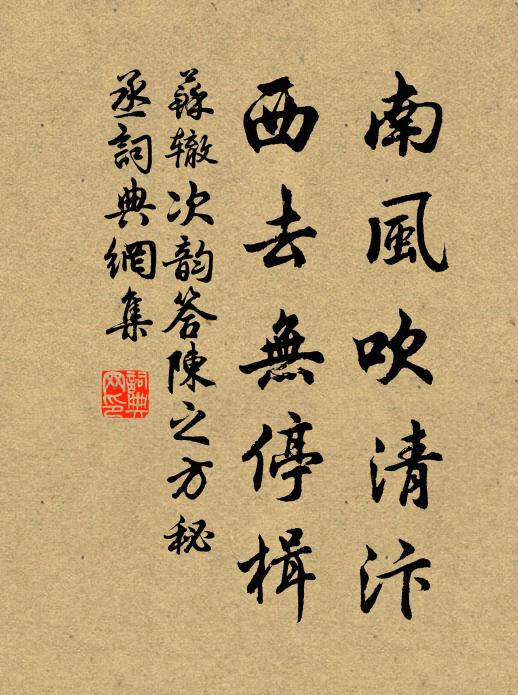 南風吹清汴
西去無停楫
蘇辙次韵答陳之方秘
丞詞典網集
詞典网印